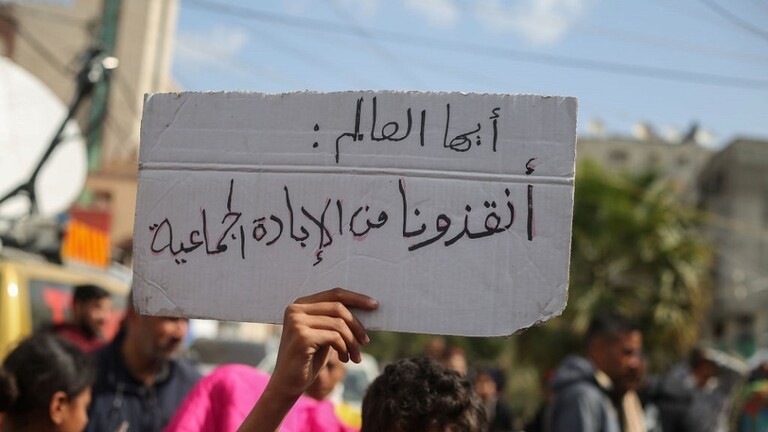 أيها العالم :
أنقذونا من الإبادة الجماعية